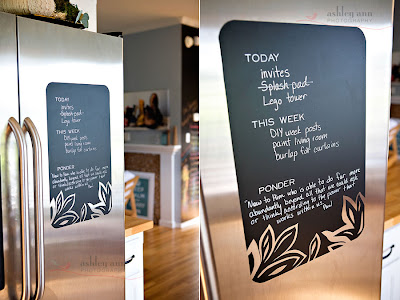 TODAY
invites
Splash pad
Lego tower
THIS WEEK
DIY week posts
paint living room
burlap for curtains
PONDER
"Now to Him who is able to do far more
abundantly beyond all that we could ask
or think, according to the power that
works within us"
Paul
ashley ann
TODAY
invites
Splash pad
Lego tower
THIS WEEK
DIY week posts
paint living room
burlap for curtains
PONDER
"Now to Him who is able to do far more
abundantly beyond all that we could ask
or think, according to the power that
works within us"
Paul
ashley ann
PHOTOGRAPHY